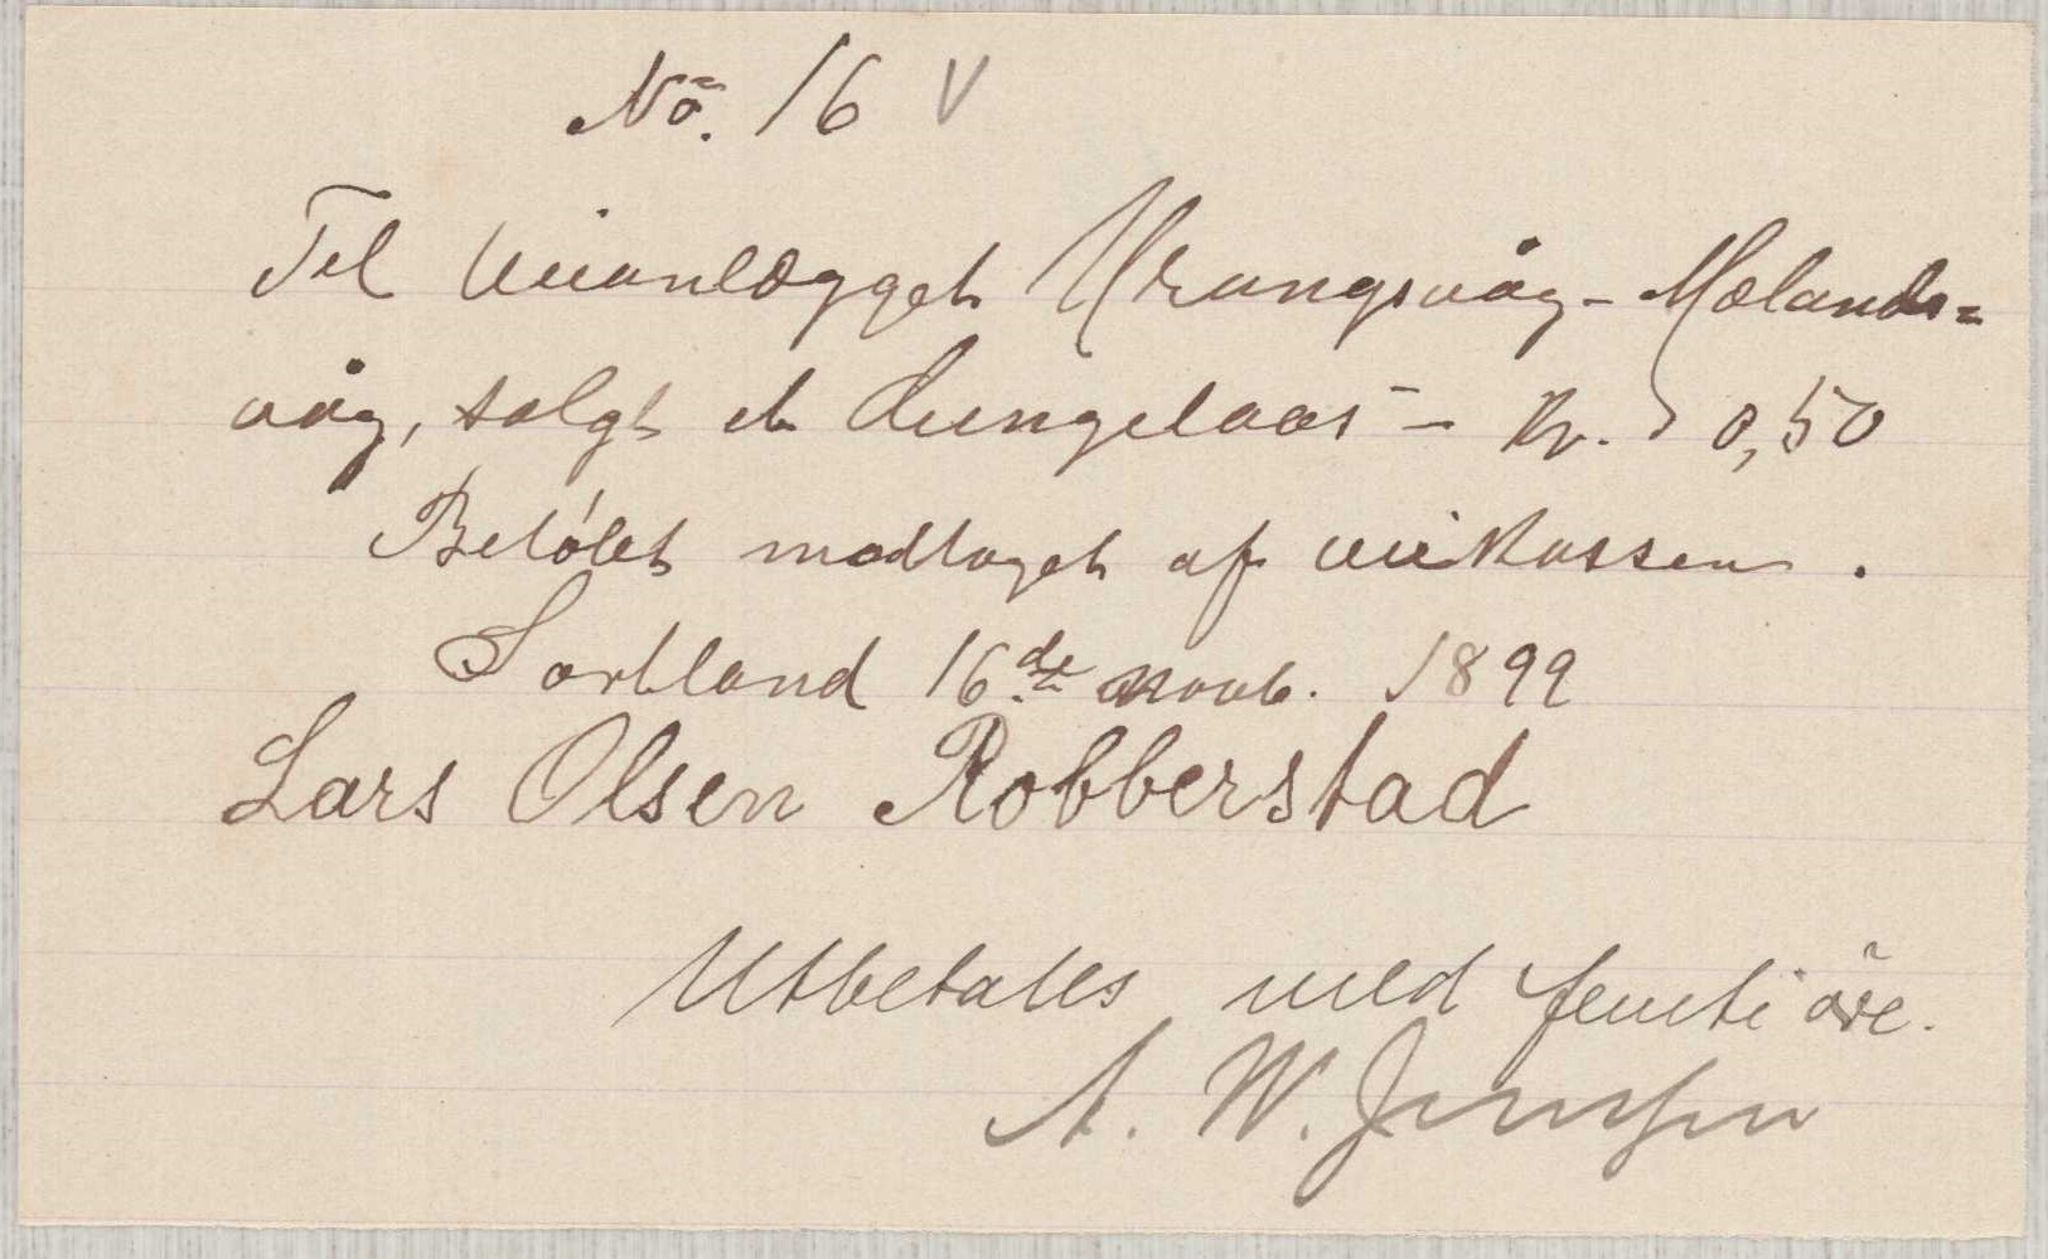 No. 16 V
Til veianlægget Urangsvåg - Mælands=
våg, solgt et hengelaas - Kr. 0,50
Beløbet modtaget af veikassen.
Sortland 16de novb. 1899
Lars Olsen Robberstad
Utbetales med femti öre.
A. W. Jenssen